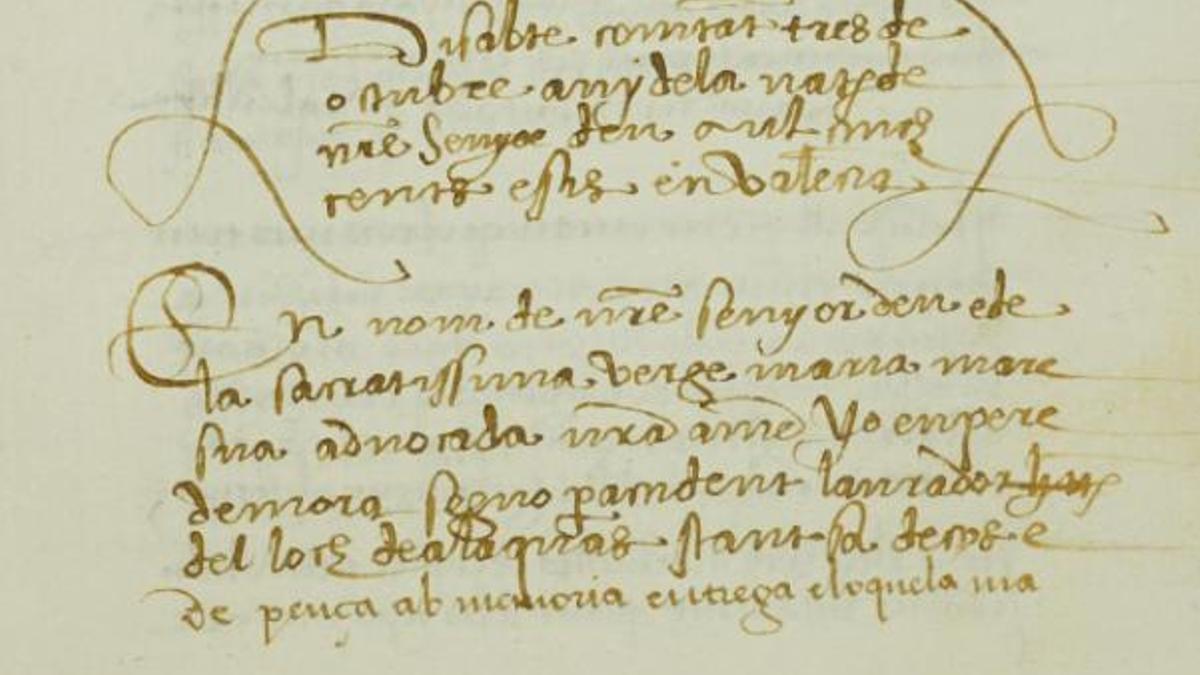 Disabte comtat tres de
octubre any dela nat de
nre Senyor deu Mil cinch
cents e sis en Valencia
En nom de nre senyor deu e de
la sacratissima verge maria mare
sua advocada nra ame Yo en pere
de mora seguo pacudent laurador
del loch de alaquas stant sa de cos e
de pença ab memoria entrega e loquela ma